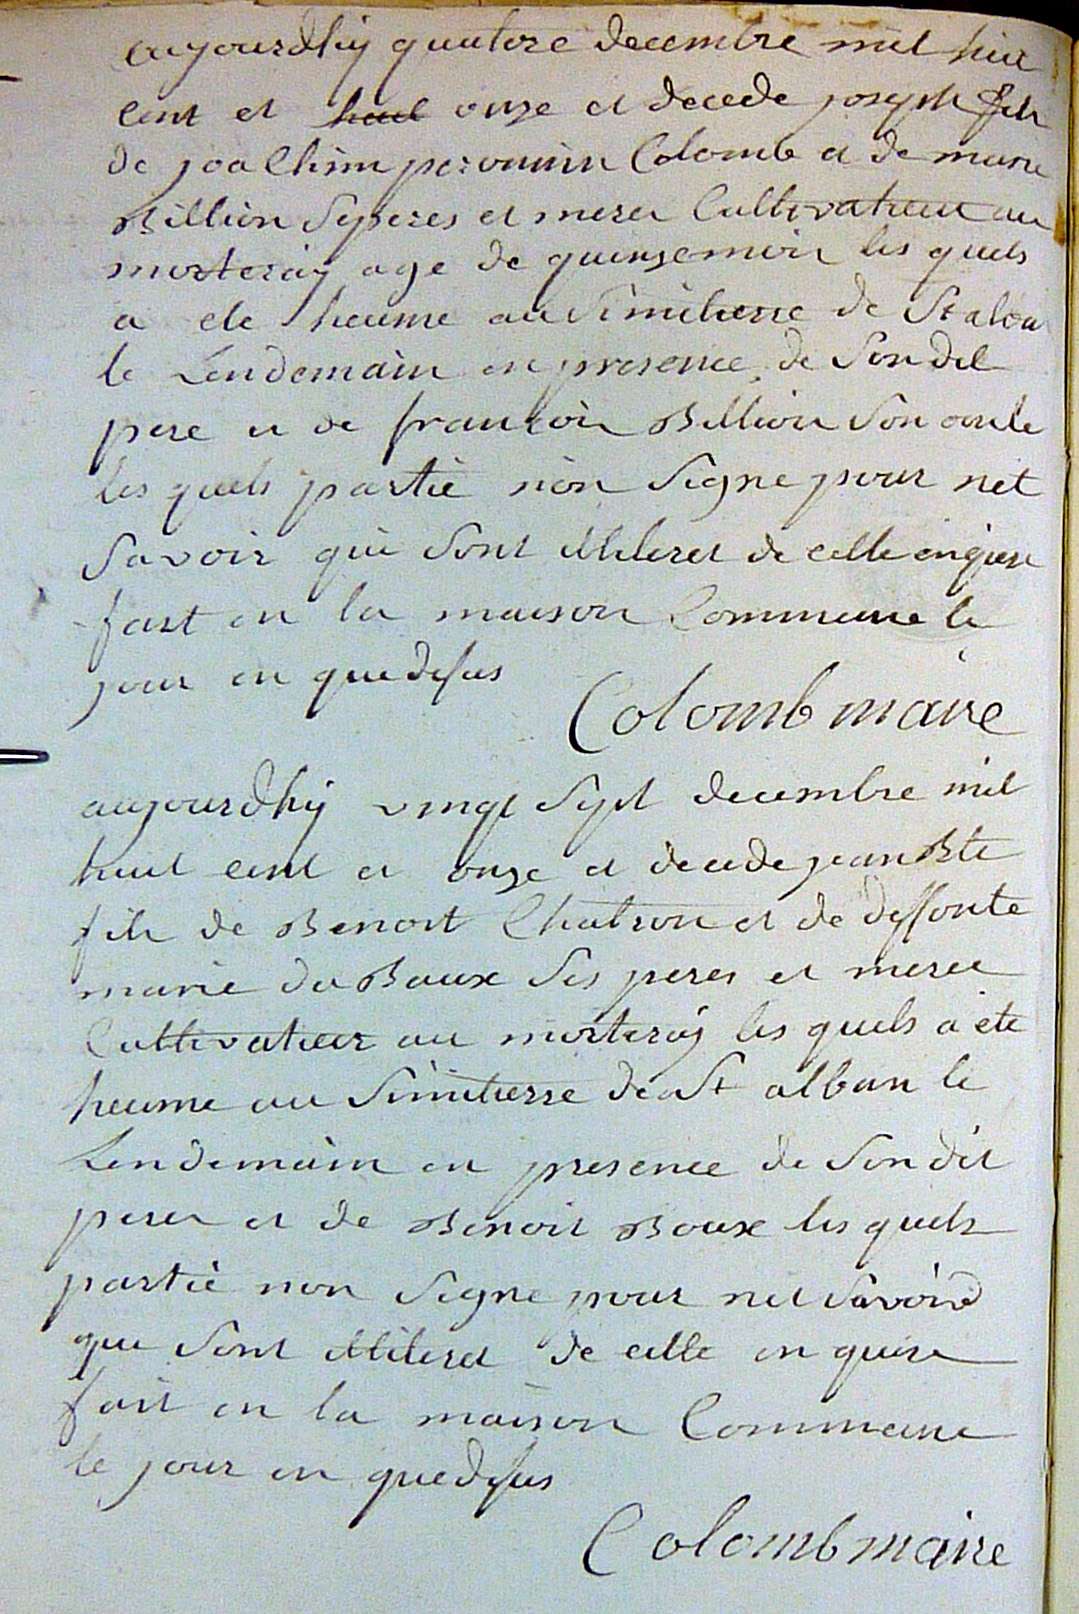 aujourdhiÿ quatorze decembre mil huit
cent et huit onze et decede joseph fils
de joaChim peronnin Colomb et de marie
Billion Sesperes et merer Cultivateur au
morteraÿ age de quinzemoir les quels
a ete heume au Simitierre de St alban
le Lendemain en presence de Son dit
pere et de francoir Billion Son oncle
les quels partie non Signe pour net
Savoir que Sont illiteret de celle enquere
fait en la maison Commune le
jour en quedesus
Colomb maire
aujourdhiÿ vingt Sept decembre mil
huit cent et onze et decede jean Bte
fils de Benoit Chatron et de deffonte
marie du Boux Ses peres et merer
Cultivateur au morteraÿ les quels a ete
heume au Simitierre de St alban le
Lendemain en presence de Son dit
perer et de Benoit Boux les quels
partie non Signe pour net Savoir
que Sont illiteret de celle en quere
fait en la maison Commune
le jour en quedesus
Colomb maire